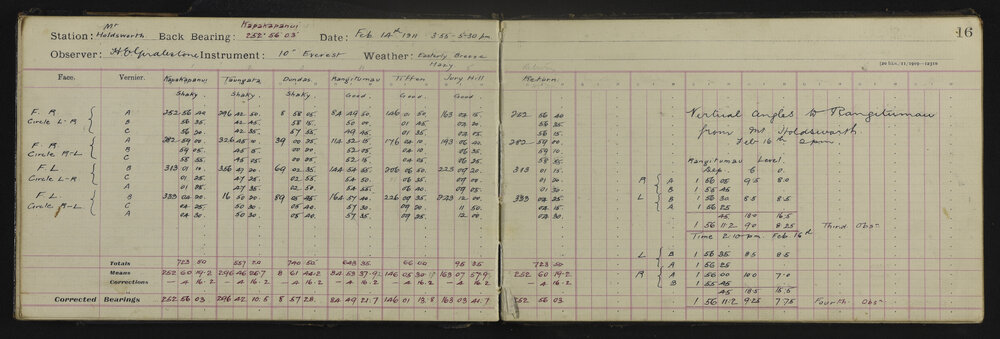 Mt Kapakapanui 16
Station: Holdsworth. Back Bearing: 252·56·03 Date: Feb 14th 1911 3·55 - 5·30 pm
Observer: Instrument: 10" Everest Weather: Easterly Breeze
Hazy
Face. Vernier. Kapakapanui Taungata Dundas. Rangitumau Tiffen Jury Hill Return
Shaky Shaky Shaky. Good. Good. Good.
F. R A 252 56 40 296 42 50. 8 58 05 84 49 50 146 0 50. 163 02 15. 252 56 40
Circle L-R B 56 35 42 45 58 15 50 00 01 45 02 20 56 35
C 56 20. 42 35. 57 35 49 45 01 35 02 05 56 15
F. R A 282 59 00 326 45 10. 39 00 25 114 52 15 176 04 10 193 06 282 59 00
Circle R-L B 59 05 45 05 00 20 52 05 04 10 06 59 10
C 58 55 45 05 00 52 10 04 05 06 25 58 55
F. L B 313 01 10 356 47 20 69 02 35 144 54 55 206 06 50 223 07 20 313 01 15
Circle L-R C 01 25 47 25 02 55 54 50 06 55 07 00 01 20
A 01 25 47 35 02 50 54 55 06 40 09 05 01 30
F. L B 333 04 20 16 50 20 89 05 45 164 57 40 226 09 35 12 00 333 04 25
Circle R-L C 04 25 50 30 05 40 57 30 09 11 50 04 15
A 04 30 50 30 05 40 57 35 09 25 12 00 04 30
Totals 723 50 557 20 740 50 643 35 66 00 95 35 723 50
Means 252 60 19·2 296 46 26·7 8 61 44·2 84 53 37·92 146 05 30 163 07 57·9 252 60 19·2
Corrections — 4 16·2 — 4 16·2 — 4 16·2 — 4 16·2 — 4 16·2 — 4 16·2 — 4 16·2
Corrected Bearings 252 56 03 296 42 10·5 8 57 28. 84 49 21·7 146 01 13·8 163 03 41·7 252 56 03
Vertical Angles to Rangitumau
from Mt Holdsworth
Feb 16th 2 pm.
Rangitumau Level.
Dep. E O.
R A 1 56 05 9·5 8·0
B 1 56 45
L B 1 56 30 8·5 8·5
A 1 56 25
45 18·0 16·5
1 56 11·2 9·0 8·25 Third Obs
Time 2.10 pm. Feb 16th
L B 1 56 35 8·5 8·5
A 1 56 25
R A 1 56 00 10·0 7·0
B 1 55 45
45 18·5 15·5
1 56 11·2 9·25 7·75 Fourth Obs